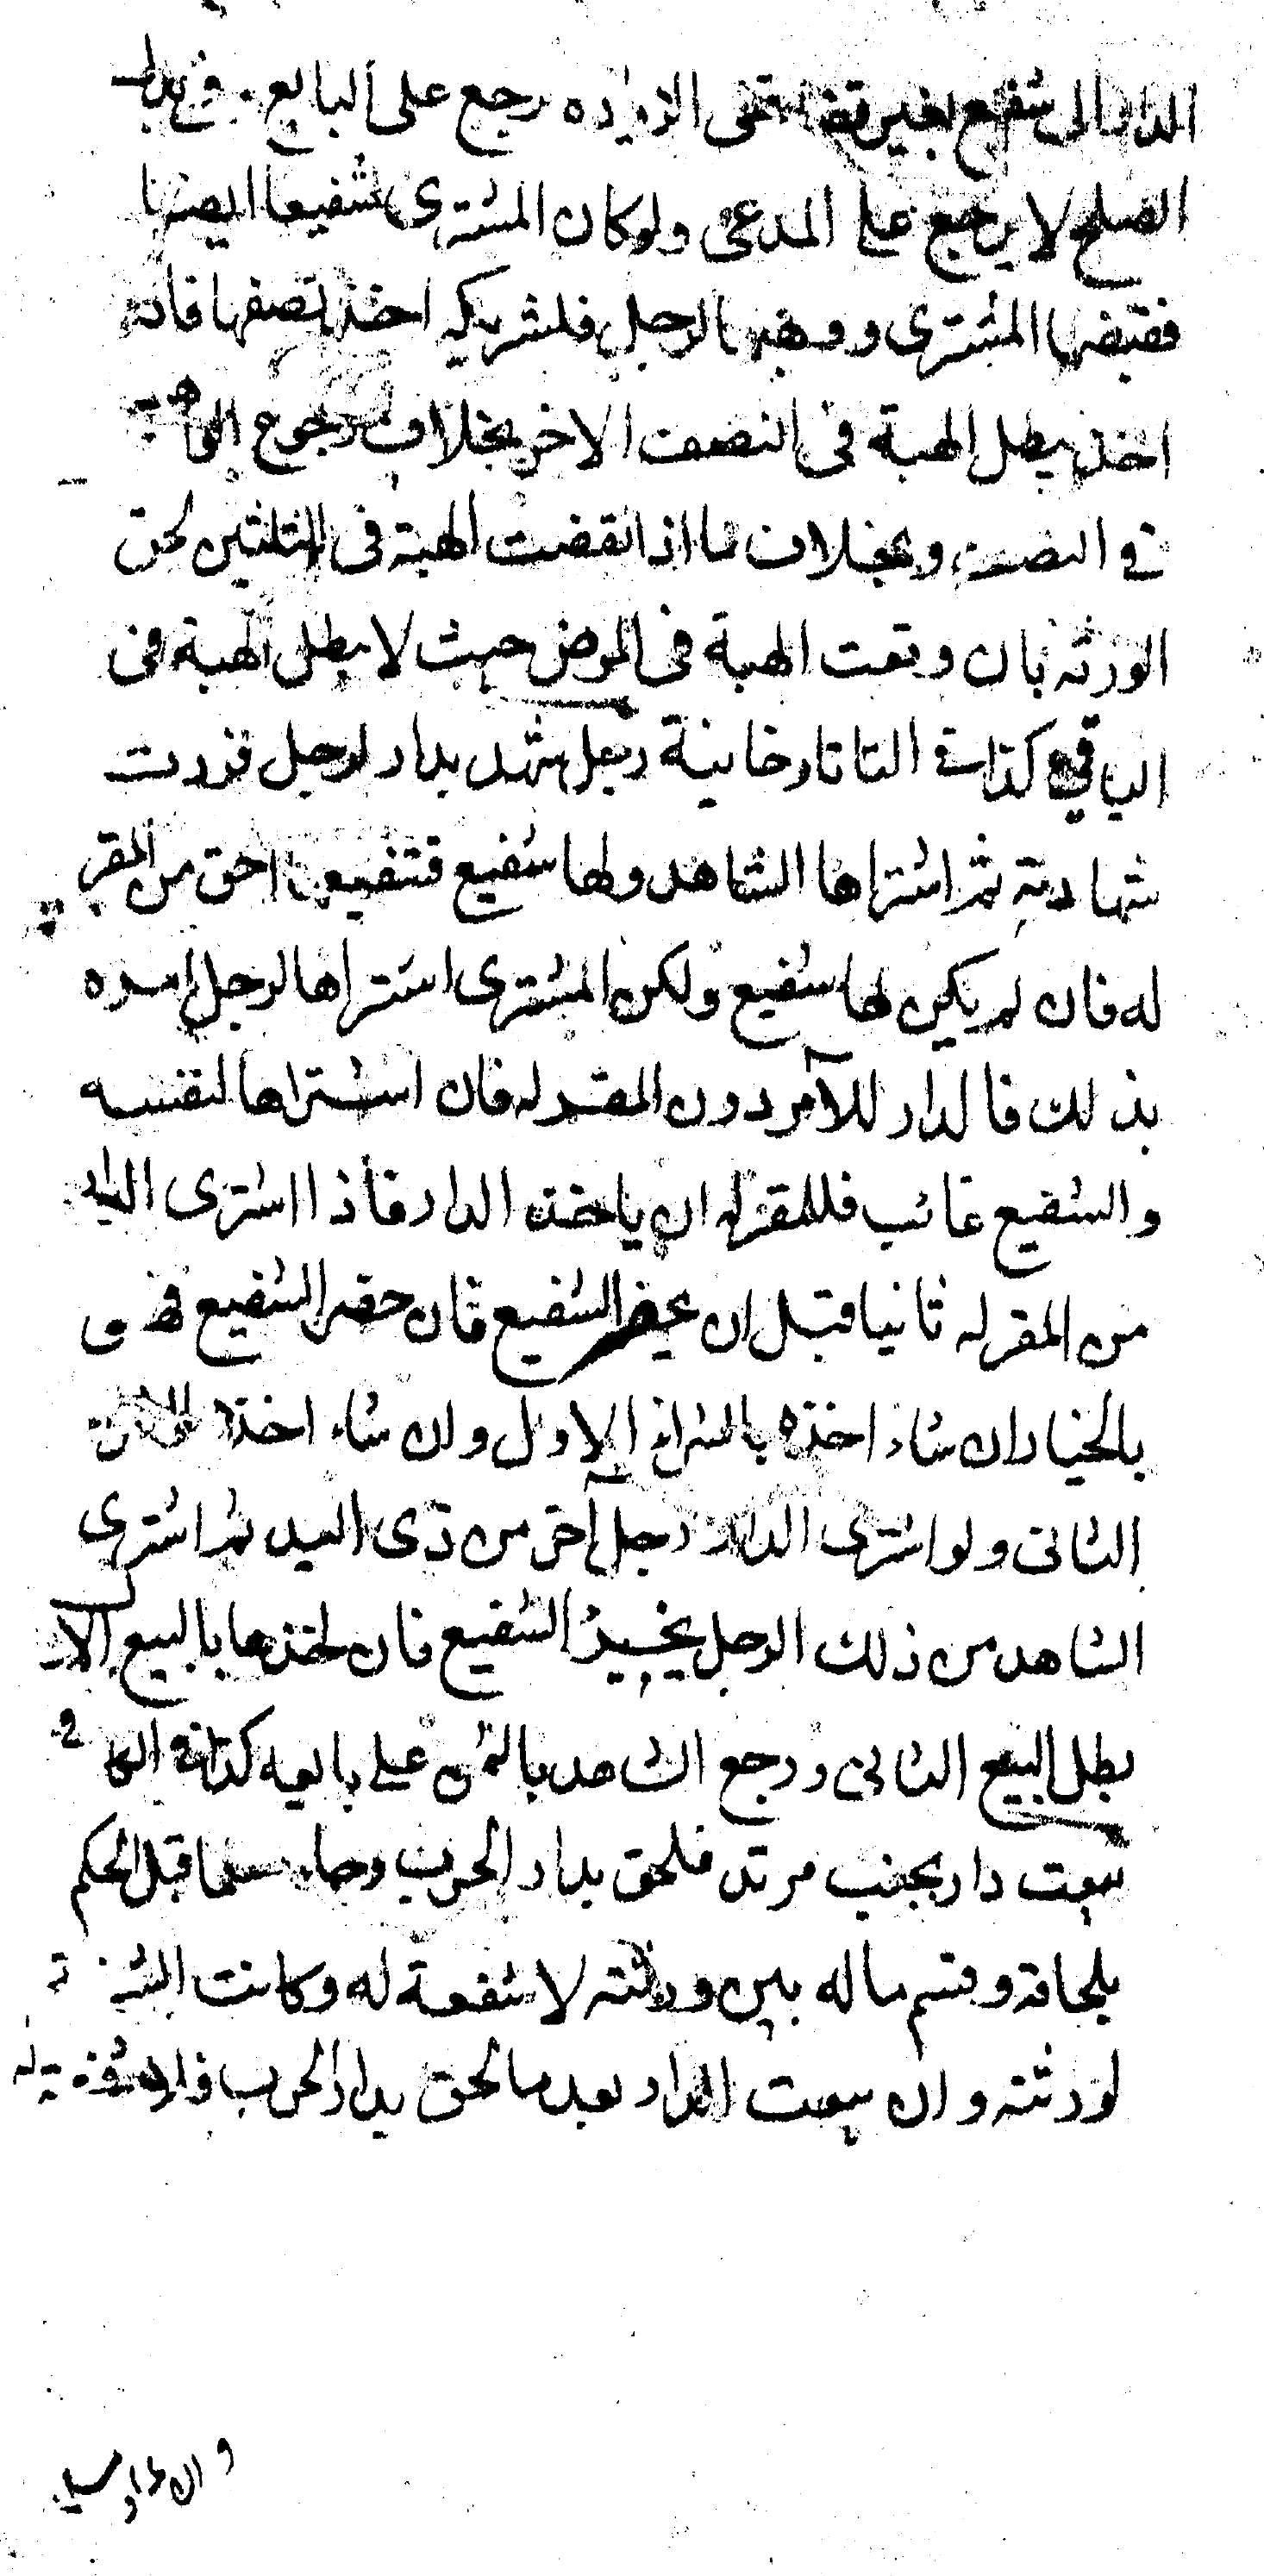 الدار الى شفيع بغير قضا الزيادة رجع على البايع وفي بدل
الصلح لا يرجع على المدعى ولو كان المشترى شفيعا ايضا
فقبضها المشترى ووهبها لرجل فلشريكه اخذ نصفها فان
اخذ بطل الهبة فى النصف الاخر بخلاف رجوع الواهب
في النصف وبخلاف ما اذا انقضت الهبة فى الثلثين لحق
الورثه بان وقعت الهبة فى المرض حيث لا يبطل الهبة فى
الباقي كذا في التاتارخانية رجل شهد بدار لرجل فردت
شهادته ثم اشتراها الشاهد ولها شفيع فشفيعها احق من المقر
له فان لم يكن لها شفيع ولكن المشترى اشتراها لرجل امره
بذلك فالدار للآمر دون المقر له فان اشتراها لنفسه
والشفيع غائب فللمقر له ان ياخذ الدار فاذا اشترى
من المقر له ثانيا قبل ان يحضر الشفيع فان حضر الشفيع فهو
بالخيار ان شاء اخذه بالشراء الاول وان شاء اخذه
الثانى ولو اشترى الدار رجل آخر من ذى اليد ثم اشترى
الشاهد من ذلك الرجل يخير الشفيع فان اخذها بالبيع الاول
بطل البيع الثانى ورجع الشاهد بالثمن على بايعه كذا في
بيعت دار بجنب مرتد فلحق بدار الحرب وجاء مسلما قبل الحكم
بلحاقه وقسم ماله بين ورثته لا شفعة له وكانت الشفعة
لورثته وان بيعت الدار بعد ما لحق بدار الحرب فلا شفعة له
وان